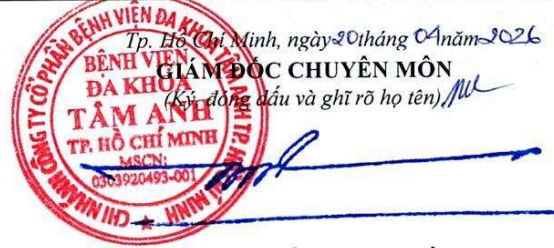 Tp. Hồ Chí Minh, ngày 20 tháng 04 năm 2026
GIÁM ĐỐC CHUYÊN MÔN
(Ký, đóng dấu và ghi rõ họ tên)
CHI NHÁNH CÔNG TY CỔ PHẦN BỆNH VIỆN ĐA KHOA TÂM ANH TP. HỒ CHÍ MINH
BỆNH VIỆN
ĐA KHOA
TÂM ANH
TP. HỒ CHÍ MINH
MSCN:
0303920493-001